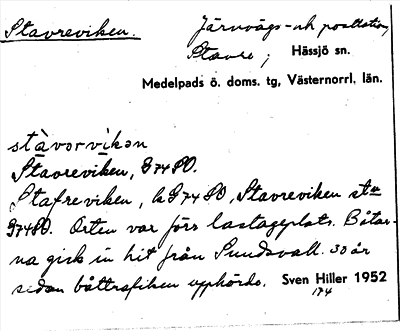 Stavreviken. Järnvägs- och poststation,
Stavre; Hässjö sn.
Medelpads ö. doms. tg, Västernorrl. län.
stàvərvikən
Stavreviken, G74SO.
Stafreviken, k G74SO, Stavreviken stn
G74SO. Orten var förr lastageplats. Båtar-
na gick in hit från Sundsvall. 30 år
sedan båttrafiken upphörde. Sven Hiller 1952
174